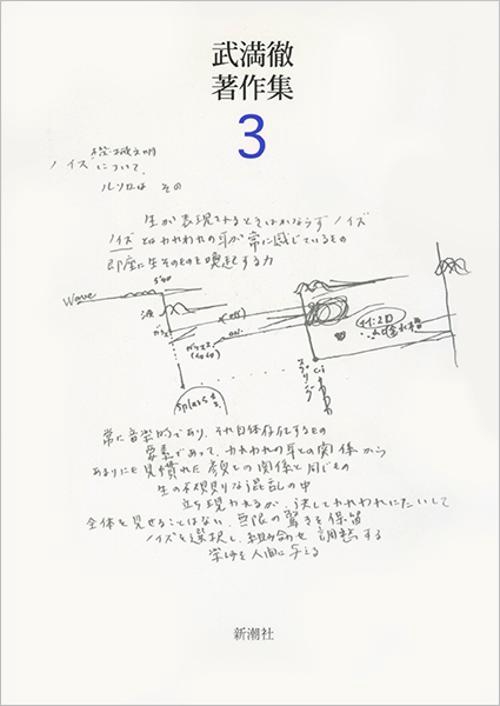 武満徹
著作集
3
機械文明
ノイズについて.
ルソロは その
生が表現されるときはかならずノイズ
ノイズとはわれわれの耳が常に感じているもの
即座に生そのものを喚起する力
Wave
(off)
on.
Splash
常に音楽的であり、それ自体存在するもの
要素であって、われわれの耳との関係から
あまりにも見慣れた顔との関係と同じもの
生の不規則な混乱の中
立ち現われるが、決してわれわれにたいして
全体を見せることはない、無限の驚きを保留
ノイズを選択し、組み合わせ 調整する
を人間に与える
新潮社